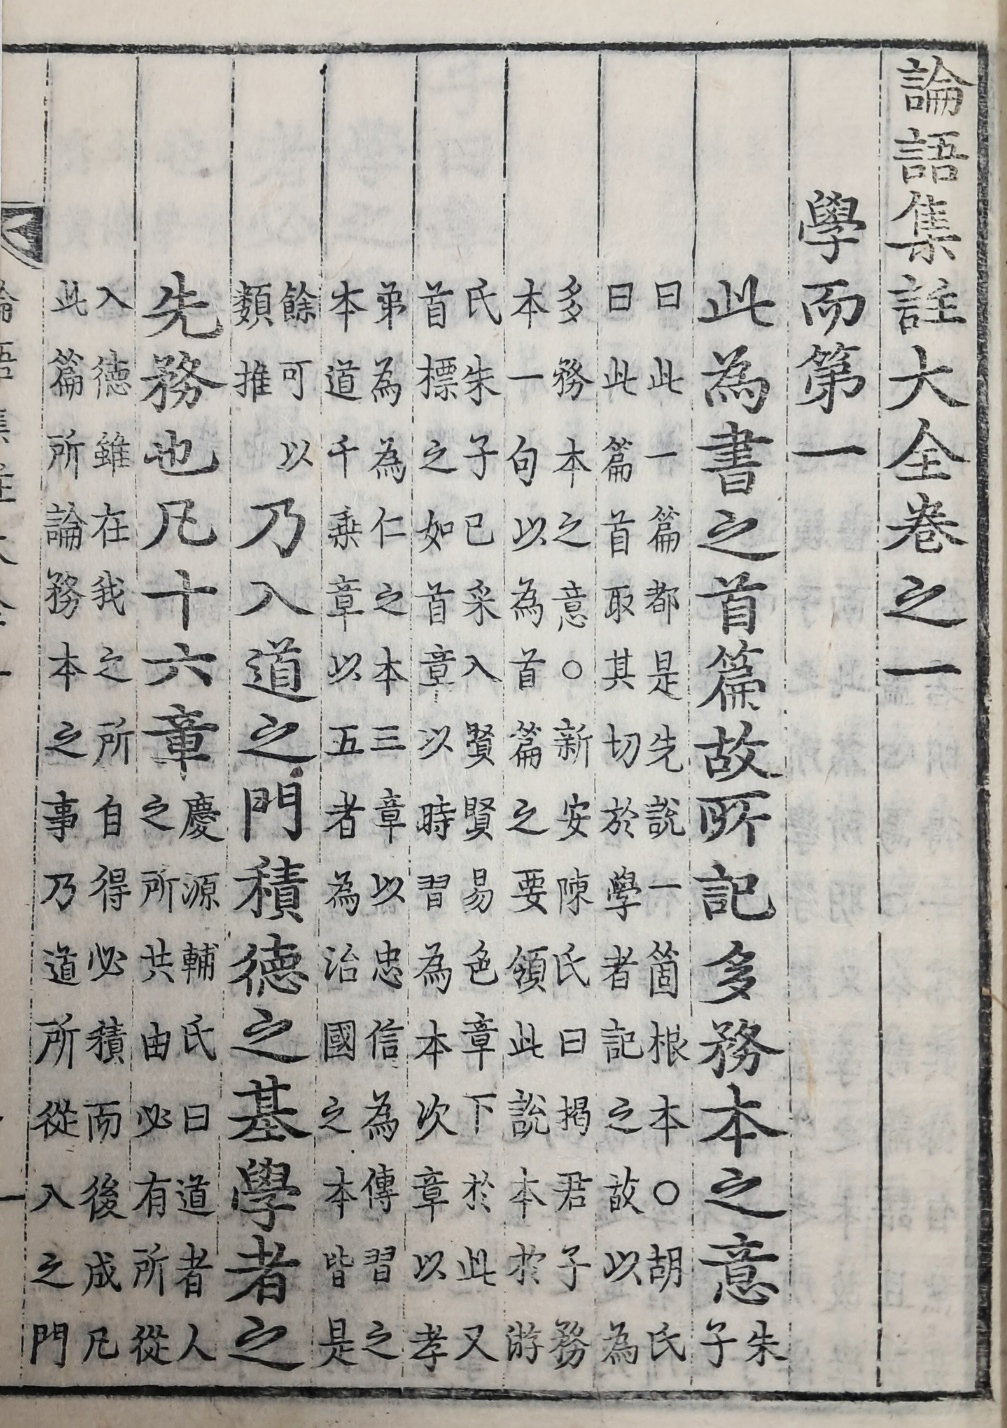 論語集註大全卷之一
學而第一
此為書之首篇故所記多務本之意朱
子
曰此一篇都是先說一箇根本○胡氏
曰此篇首取其切於學者記之故以為
多務本之意○新安陳氏曰揭君子務
本一句以為首篇之要領此說本於游
氏朱子已采入賢賢易色章下於此又
首標之如首章以時習為本次章以孝
弟為為仁之本三章以忠信為傳習之
本道千乘章以五者為治國之本皆是
餘可以
類推
乃入道之門積德之基學者之
先務也凡十六章
慶源輔氏曰道者人
之所共由必有所從
入德雖在我之所自得必積而後成凡
此篇所論務本之事乃道所從入之門